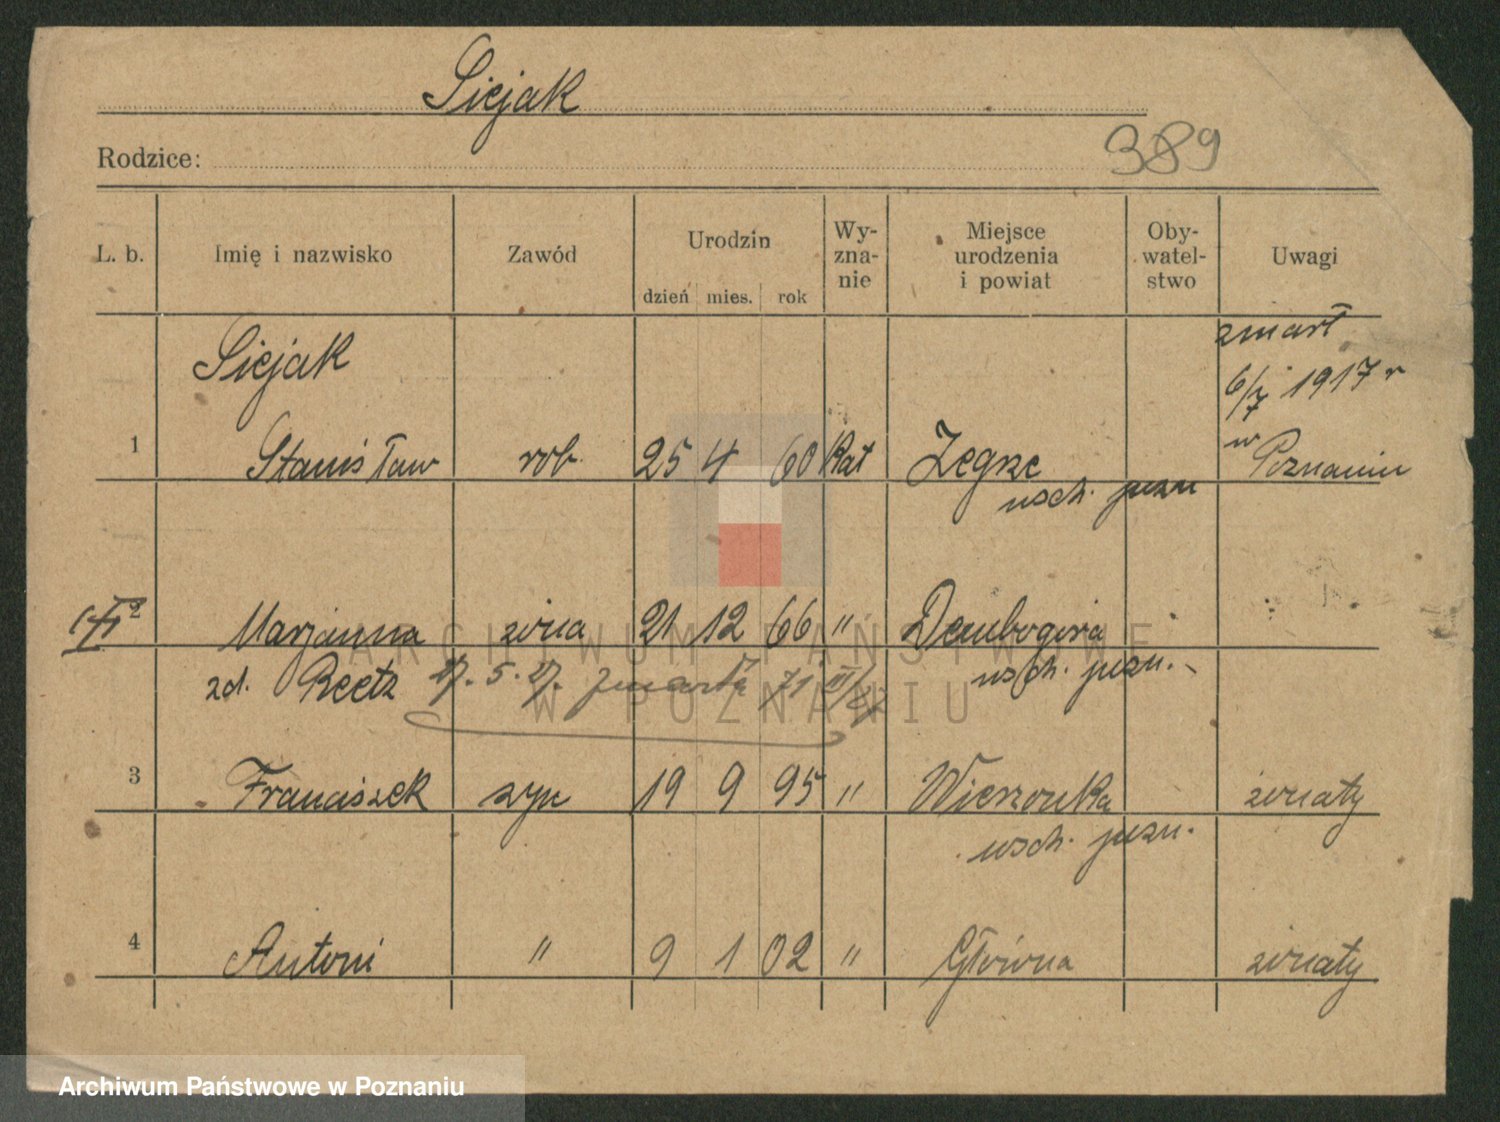 Siejak
Rodzice:
389
L. b. Imię i nazwisko Zawód Urodzin dzień mies. rok Wy-zna-nie Miejsce urodzenia i powiat Oby-watel-stwo Uwagi
Siejak
zmarł
6/7 1917 r
w Poznaniu
1 Stanisław rob. 25 4 60 Kat Zegrze
wsch. pozn
2 Marjanna żona 21 12 66 " Dembogóra
zd. Reetz 17. 5. 27. zmarła
wsch. pozn.
3 Franciszek syn 19 9 95 " Wierzonka żonaty
wsch. pozn.
4 Antoni " 9 1 02 " Główna żonaty
ARCHIWUM PAŃSTWOWE
W POZNANIU
Archiwum Państwowe w Poznaniu